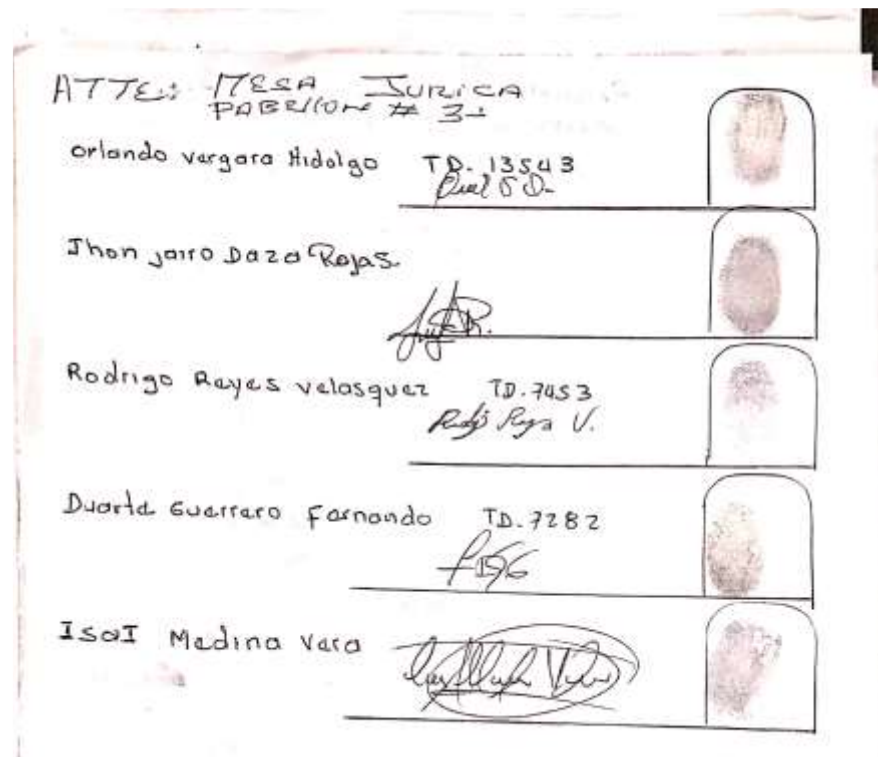 ATTE: MESA JURICA
PABELLON # 3
orlando vergara Hidalgo TD. 13543
Jhon jairo Daza Rojas.
Rodrigo Reyes velasquez TD. 7453
Duarte Guerrero Fernando TD. 7282
IsaI Medina Vera